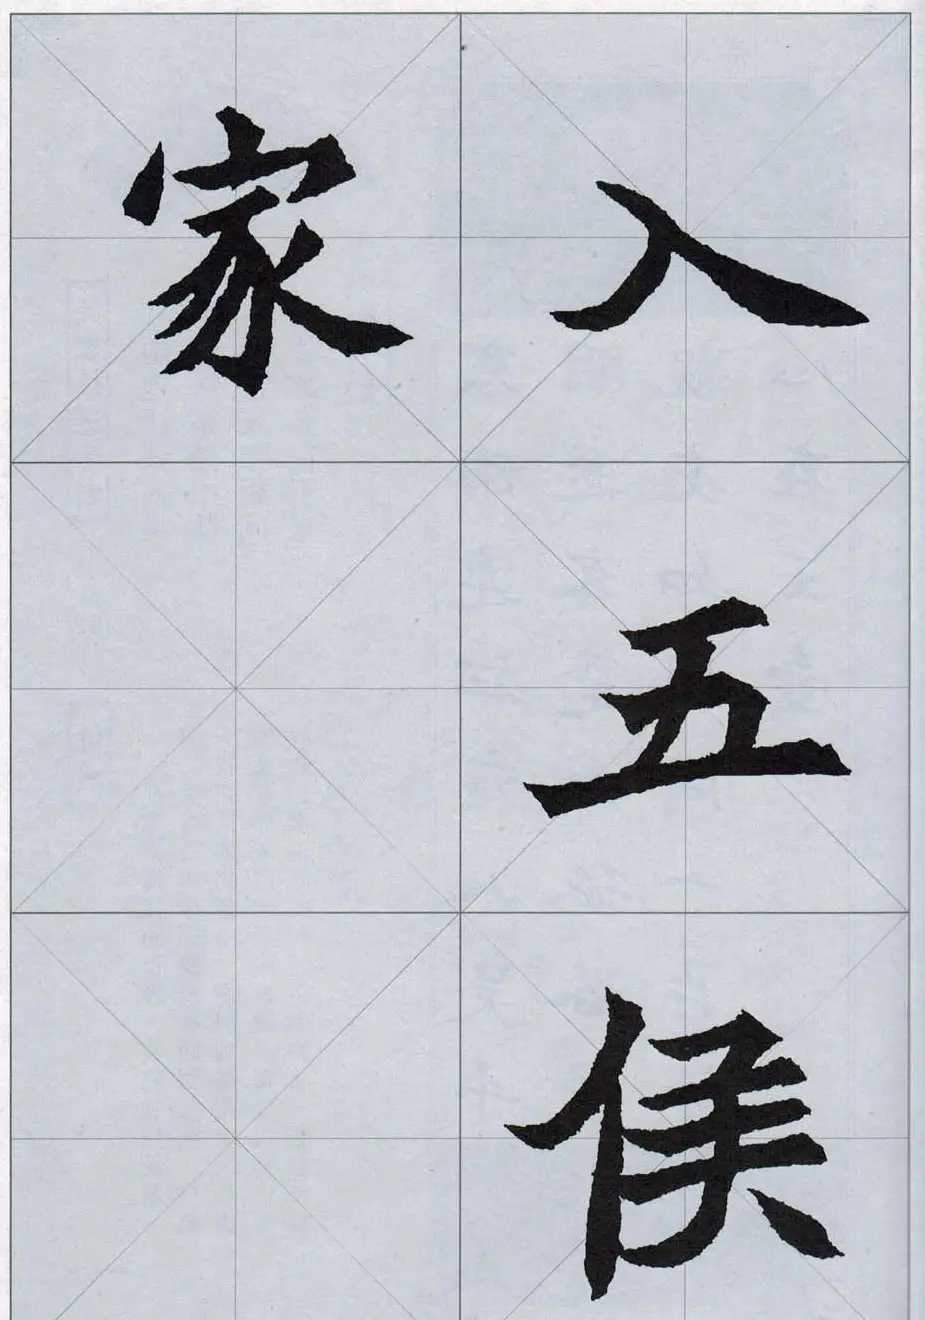 入五侯
家